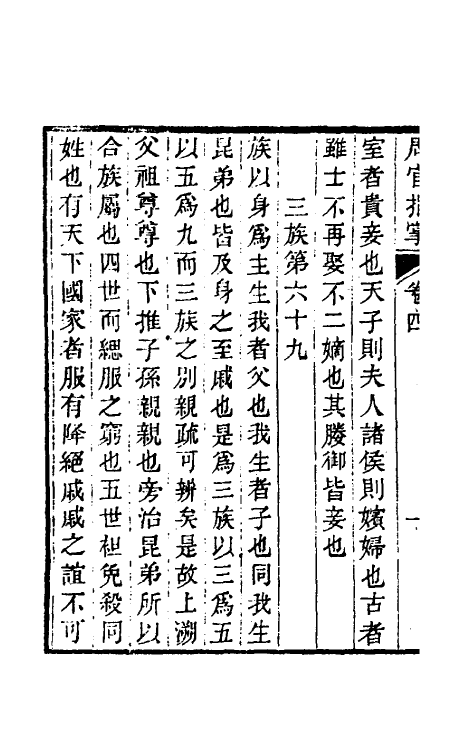 周官指掌 卷四 一
室者貴妾也天子則夫人諸侯則嬪婦也古者
雖士不再娶不二嫡也其媵御皆妾也
三族第六十九
族以身爲主生我者父也我生者子也同我生
昆弟也皆及身之至戚也是爲三族以三爲五
以五爲九而三族之別親疏可辨矣是故上溯
父祖尊尊也下推子孫親親也旁治昆弟所以
合族屬也四世而緦服之窮也五世袒免殺同
姓也有天下國家者服有降絕戚戚之誼不可